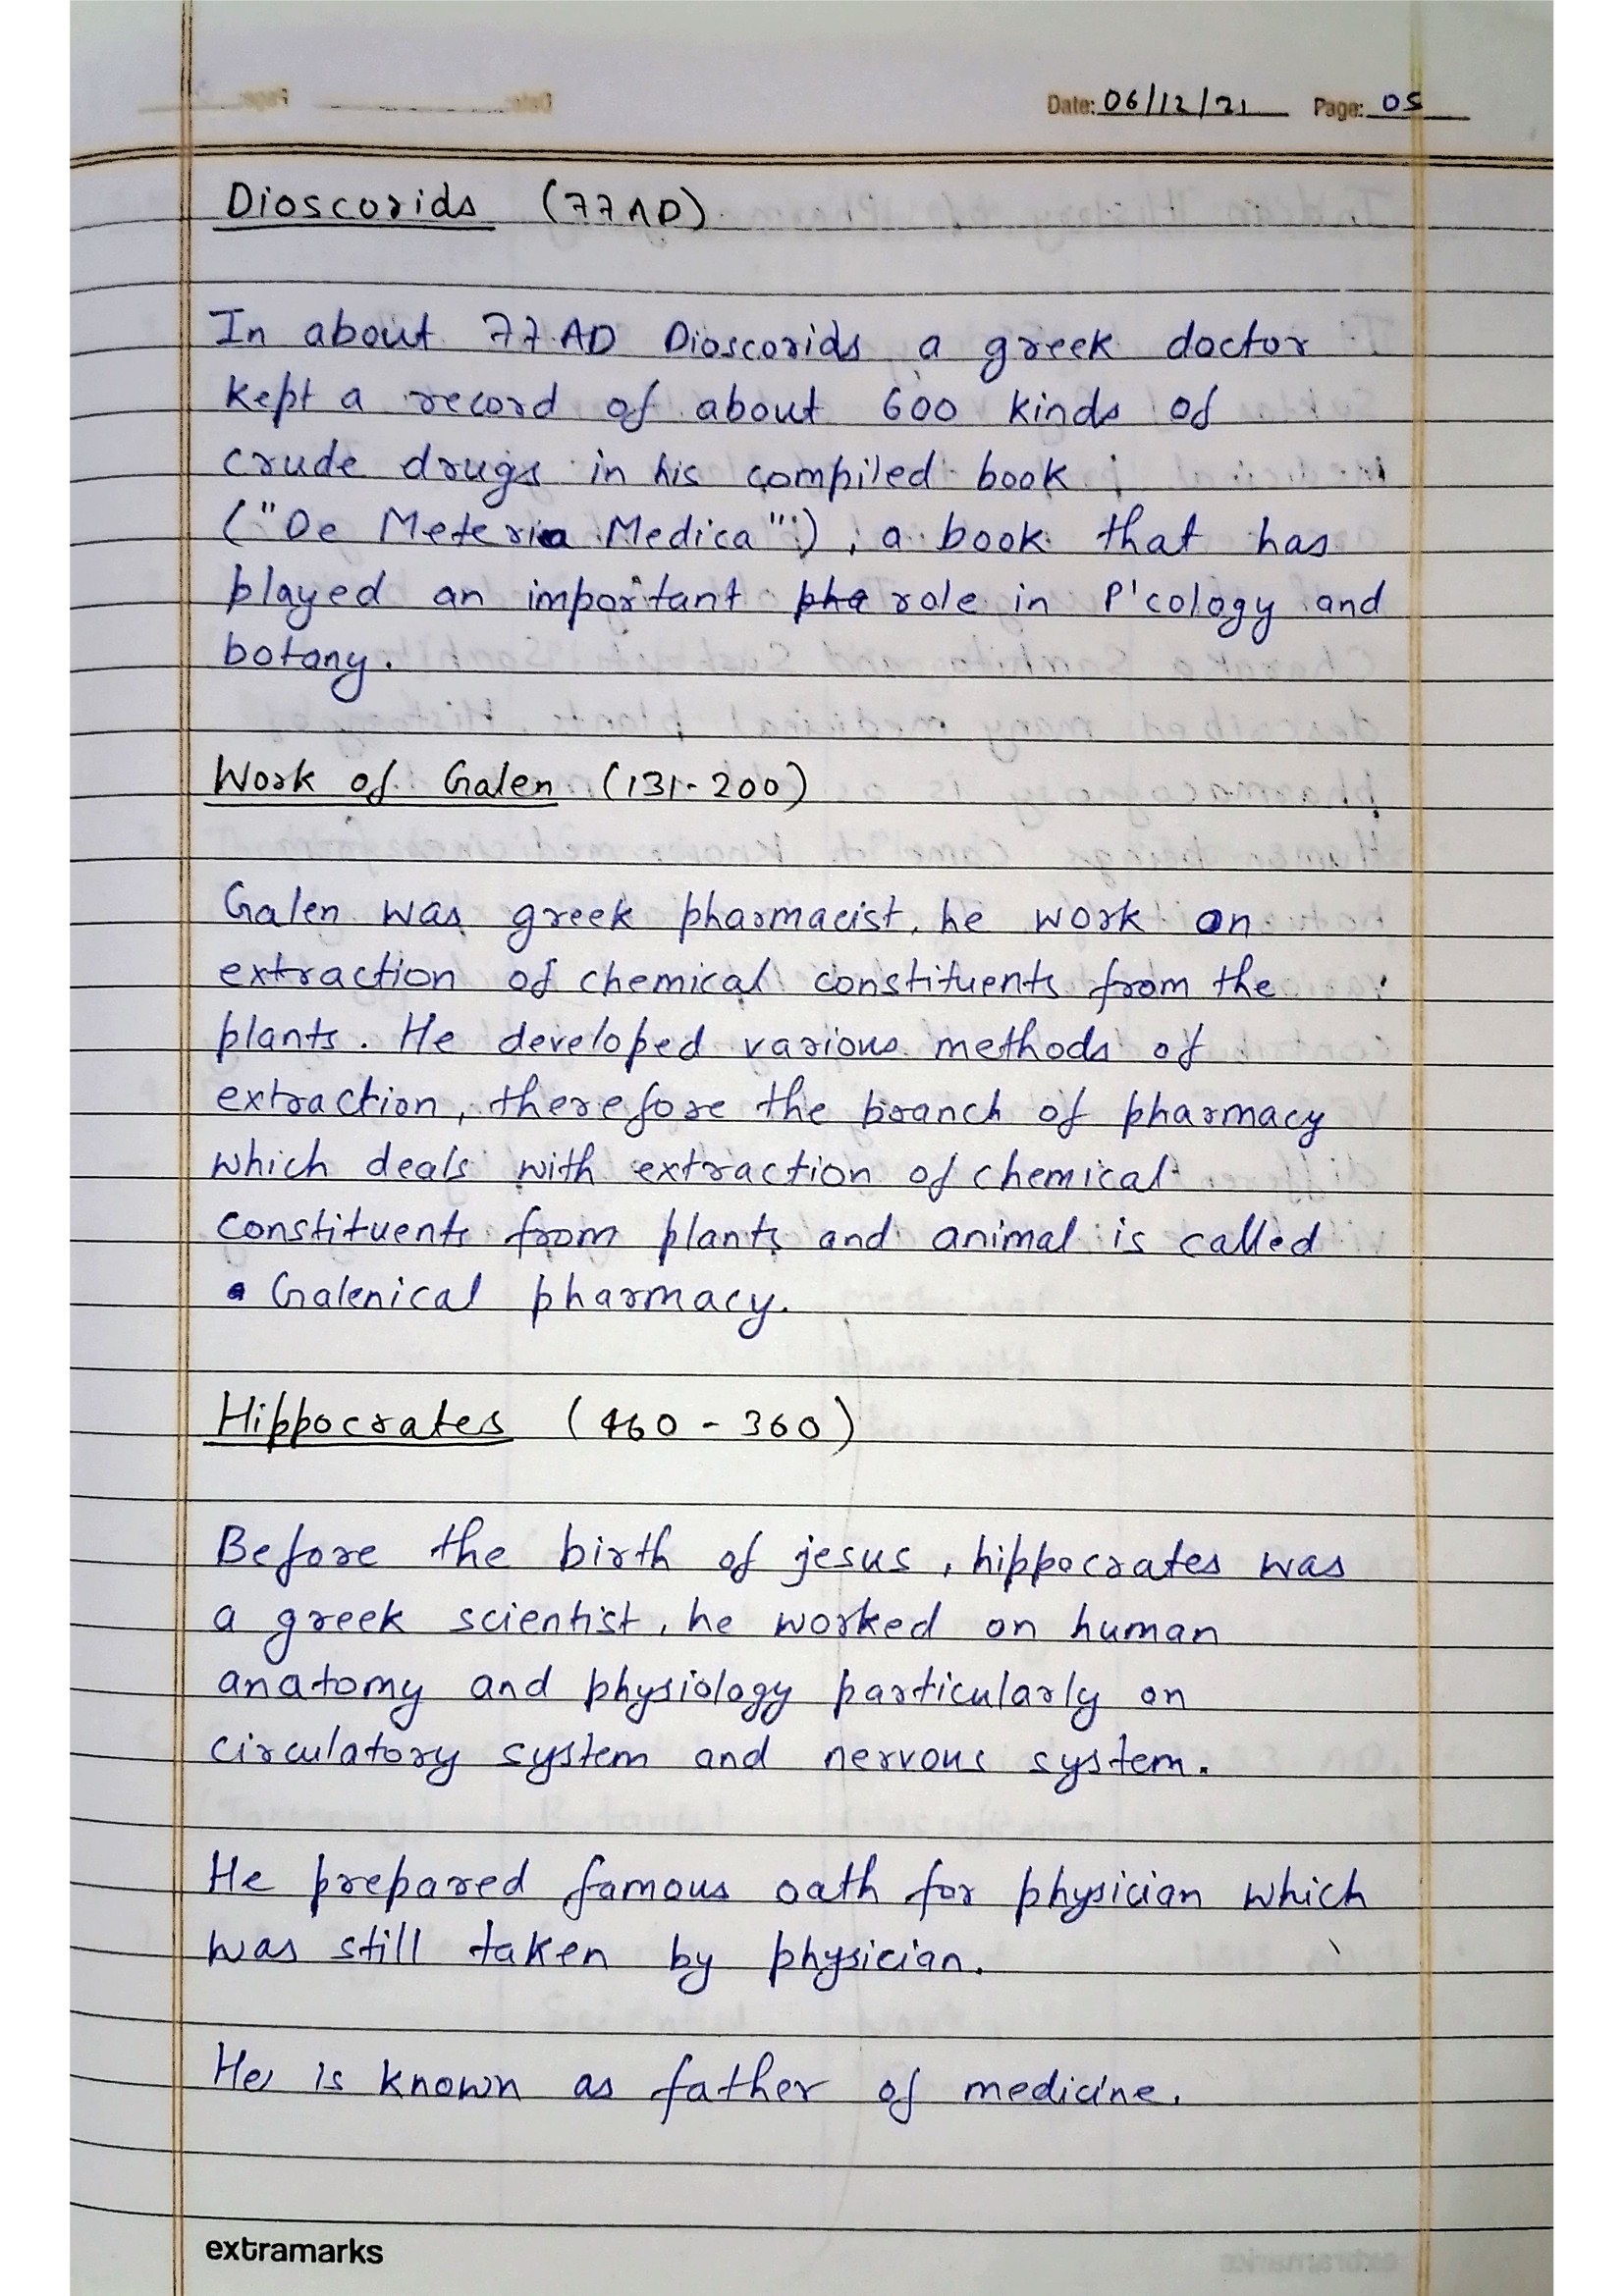 Date: 06/12/21 Page: 05
Dioscorids (77AD)
In about 77 AD Dioscorids a greek doctor
kept a record of about 600 kinds of
crude drugs in his compiled book
("De Meteria Medica"), a book that has
played an important pha role in P'cology and
botany.
Work of Galen (131-200)
Galen was greek pharmacist, he work on
extraction of chemical constituents from the
plants. He developed various methods of
extraction, therefore the branch of pharmacy
which deals with extraction of chemical
constituents from plants and animal is called
Galenical pharmacy.
Hippocrates (460 - 360)
Before the birth of jesus, hippocrates was
a greek scientist, he worked on human
anatomy and physiology particularly on
circulatory system and nervous system.
He prepared famous oath for physician which
was still taken by physician.
He is known as father of medicine.
extramarks